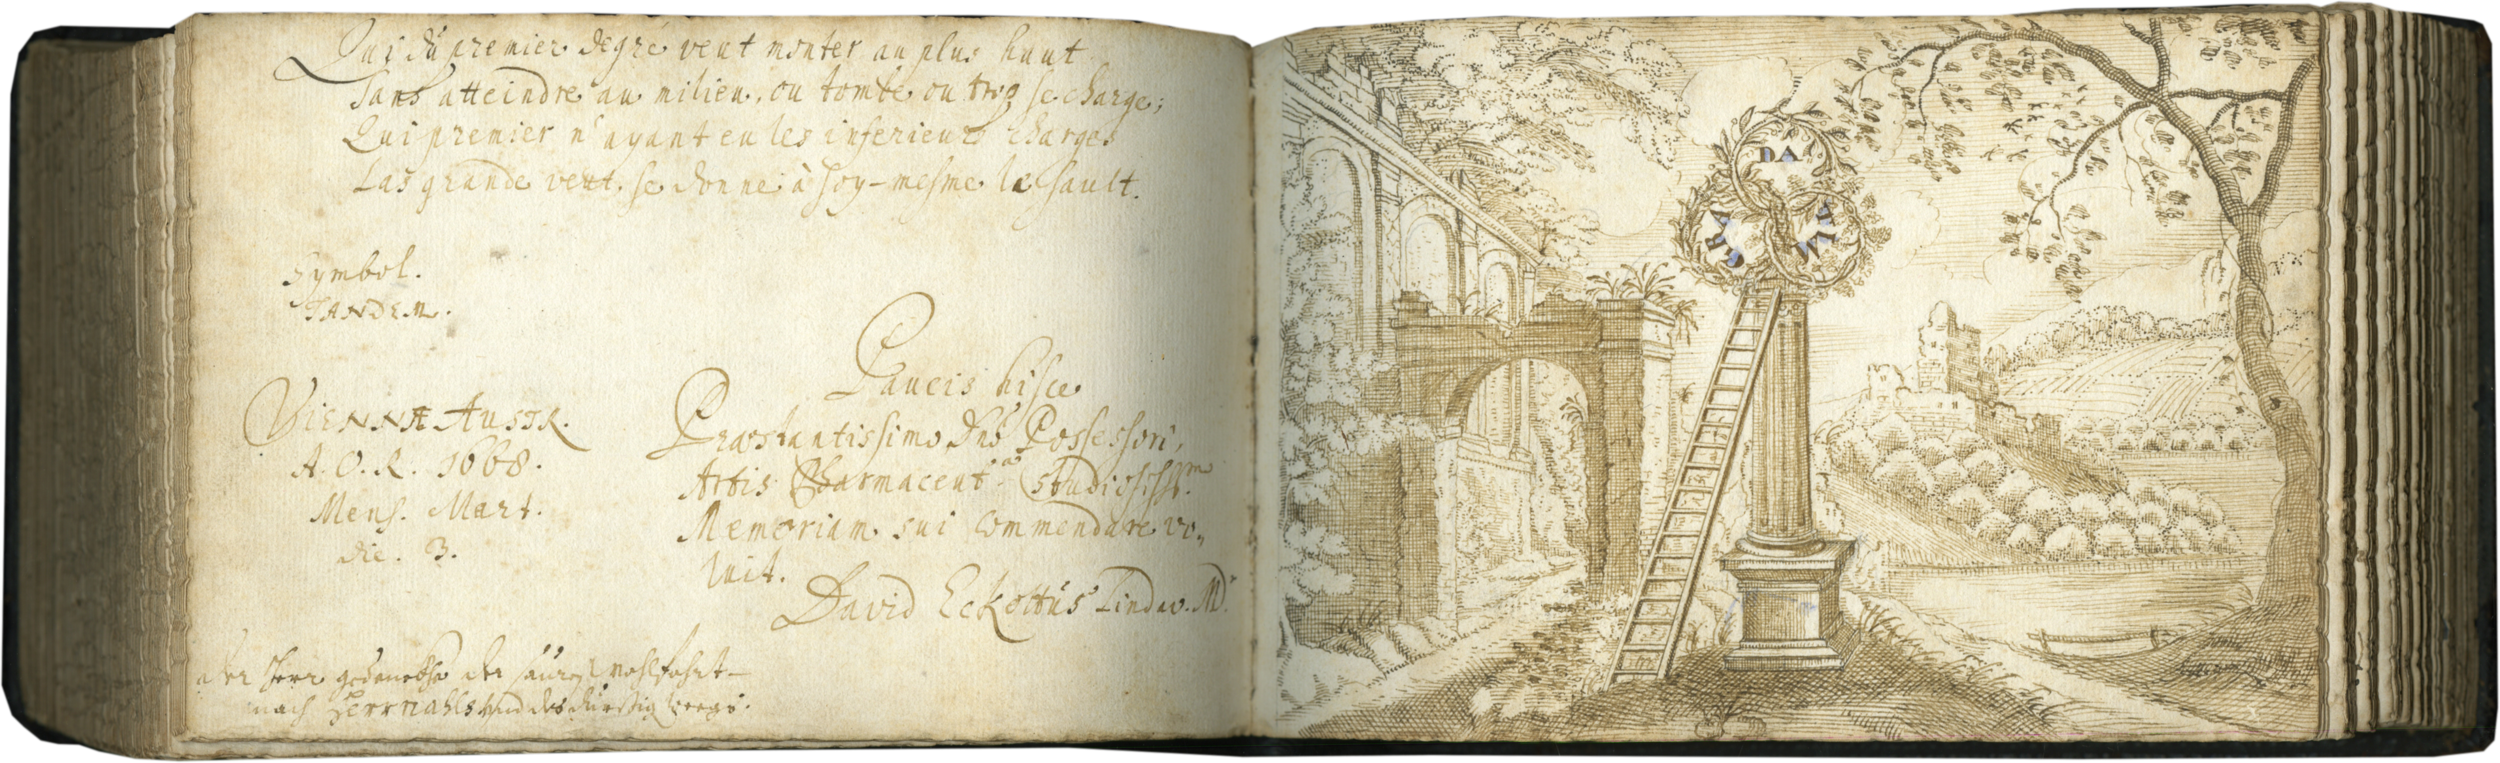 Qui du premier degré veut monter au plus haut
Sans atteindre au milieu, ou tombe ou trop se charge;
Qui premier n'ayant eu les inferieures charges
Las grande veut, se donne à soy-mesme le sault.
Symbol.
TANDEM.
VIENNÆ AUSTR.
A. O. R. 1668.
Mens. Mart.
die. 3.
Paucis hisce
Præstantissimo Dno Possessori,
Artis Pharmaceut. Studiosiss.
Memoriam sui commendare vo„
luit.
David Eckoltus Lindav. M.
der Herr gedencke der
nach Herrnahls und des durstig
DA
GRA
TIM